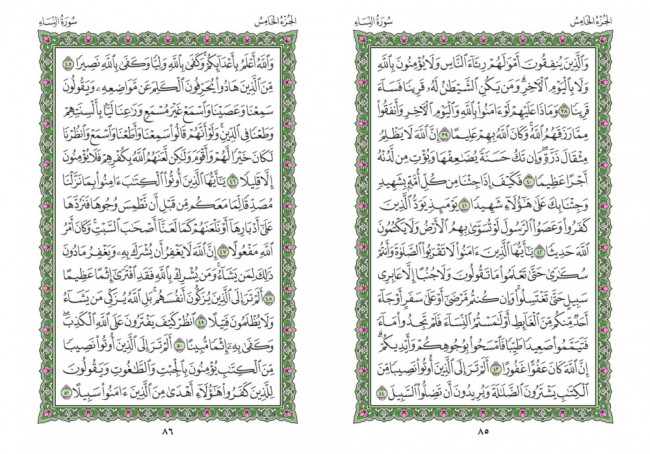 الجزء الخامس
سورة النساء
والذين ينفقون أموالهم رئاء الناس ولا يؤمنون بالله
ولا باليوم الآخر ومن يكن الشيطان له قرينا فساء
قرينا ٣٨ وماذا عليهم لو ءامنوا بالله واليوم الآخر وأنفقوا
مما رزقهم الله وكان الله بهم عليما ٣٩ إن الله لا يظلم
مثقال ذرة وإن تك حسنة يضعفها ويؤت من لدنه
أجرا عظيما ٤٠ فكيف إذا جئنا من كل أمة بشهيد
وجئنا بك على هؤلاء شهيدا ٤١ يومئذ يود الذين
كفروا وعصوا الرسول لو تسوى بهم الأرض ولا يكتمون
الله حديثا ٤٢ يأيها الذين ءامنوا لا تقربوا الصلوة وأنتم
سكرى حتى تعلموا ما تقولون ولا جنبا إلا عابري
سبيل حتى تغتسلوا وإن كنتم مرضى أو على سفر أو جاء
أحد منكم من الغائط أو لمستم النساء فلم تجدوا ماء
فتيمموا صعيدا طيبا فامسحوا بوجوهكم وأيديكم
إن الله كان عفوا غفورا ٤٣ ألم تر إلى الذين أوتوا نصيبا من
الكتب يشترون الضللة ويريدون أن تضلوا السبيل ٤٤
٨٥
الجزء الخامس
سورة النساء
والله أعلم بأعدائكم وكفى بالله وليا وكفى بالله نصيرا ٤٥
من الذين هادوا يحرفون الكلم عن مواضعه ويقولون
سمعنا وعصينا واسمع غير مسمع ورعنا ليا بألسنتهم
وطعنا في الدين ولو أنهم قالوا سمعنا وأطعنا واسمع وانظرنا
لكان خيرا لهم وأقوم ولكن لعنهم الله بكفرهم فلا يؤمنون
إلا قليلا ٤٦ يأيها الذين أوتوا الكتب ءامنوا بما نزلنا
مصدقا لما معكم من قبل أن نطمس وجوها فنردها
على أدبارها أو نلعنهم كما لعنا أصحب السبت وكان أمر
الله مفعولا ٤٧ إن الله لا يغفر أن يشرك به ويغفر ما دون
ذلك لمن يشاء ومن يشرك بالله فقد افترى إثما عظيما
٤٨ ألم تر إلى الذين يزكون أنفسهم بل الله يزكي من يشاء
ولا يظلمون فتيلا ٤٩ انظر كيف يفترون على الله الكذب
وكفى به إثما مبينا ٥٠ ألم تر إلى الذين أوتوا نصيبا
من الكتب يؤمنون بالجبت والطغوت ويقولون
للذين كفروا هؤلاء أهدى من الذين ءامنوا سبيلا ٥١
٨٦